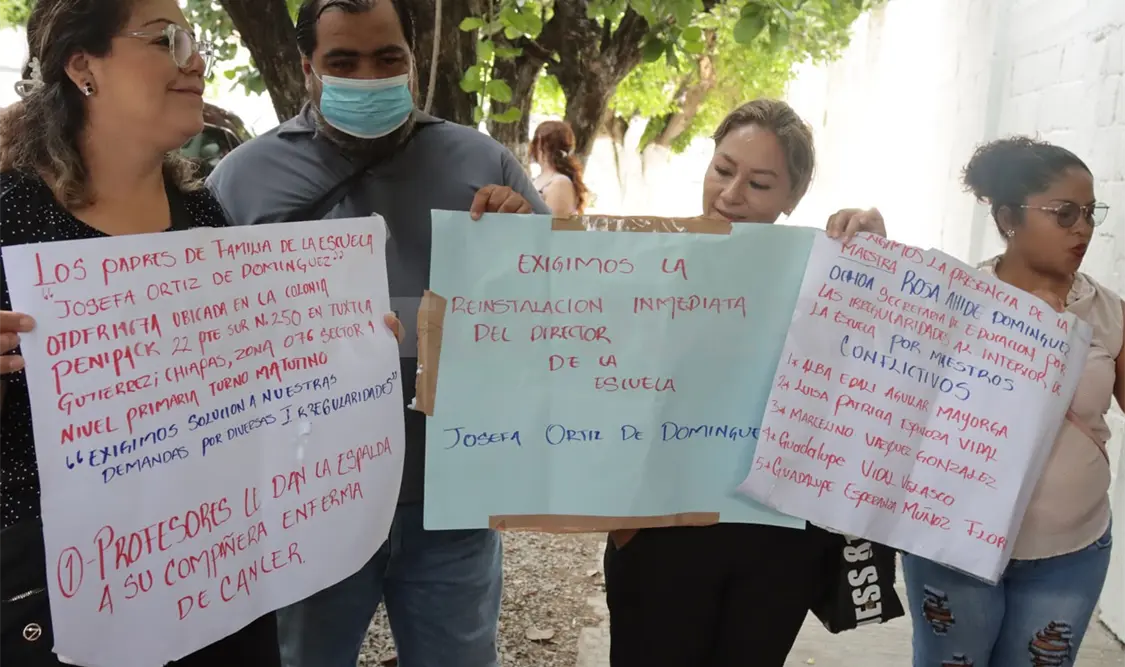 LOS PADRES DE FAMILIA DE LA ESCUELA
"JOSEFA ORTIZ DE DOMINGUEZ"
07DFR1467A UBICADA EN LA COLONIA
PENIPACK 22 PTE SUR No. 250 EN TUXTLA
GUTIERREZ; CHIAPAS, ZONA 076 SECTOR 9
NIVEL PRIMARIA TURNO MATUTINO
"EXIGIMOS SOLUCION A NUESTRAS
DEMANDAS POR DIVERSAS IRREGULARIDADES"
①-PROFESORES LE DAN LA ESPALDA
A SU COMPAÑERA ENFERMA
DE CANCER.
EXIGIMOS LA
REINSTALACION INMEDIATA
DEL DIRECTOR
DE LA
ESCUELA
JOSEFA ORTIZ DE DOMINGUE
EXIGIMOS LA PRESENCIA DE LA
MAESTRA ROSA AHIDE DOMINGUEZ
OCHOA SECRETARIA DE EDUCACION POR
LAS IRREGULARIDADES AL INTERIOR DE
LA ESCUELA POR MAESTROS
CONFLICTIVOS
1* ALBA EDALI AGUILAR MAYORGA
2* LUISA PATRICIA ESPINOZA VIDAL
3* MARCELINO VAZQUEZ GONZALEZ
4* GUADALUPE VIDAL VELASCO
5* GUADALUPE ESPERANZA MUÑOZ FLOR
ESS &